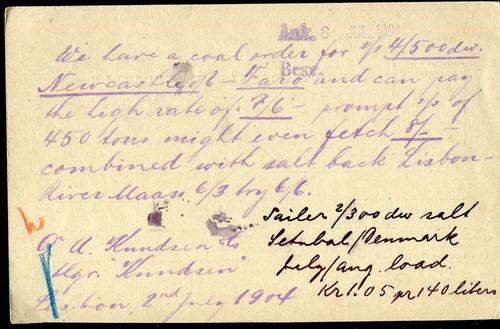 Ank. 8 JUL. 1904
Besv.
We have a coal order for s/s 4/500 dw.
Newcastle o/t - Faro and can pay
the high rate of 7/6 - prompt s/s of
450 tons might even fetch 8/- -
combined with salt back Lisbon-
River Maas 6/3 try 6/6.
O. A. Knudsen & Co
tlgr. "Knudsen"
Lisbon, 2nd July 1904
Sailer 2/300 dw salt
Setubal/Denmark
July/aug. load.
Kr 1.05 pr 140 liters